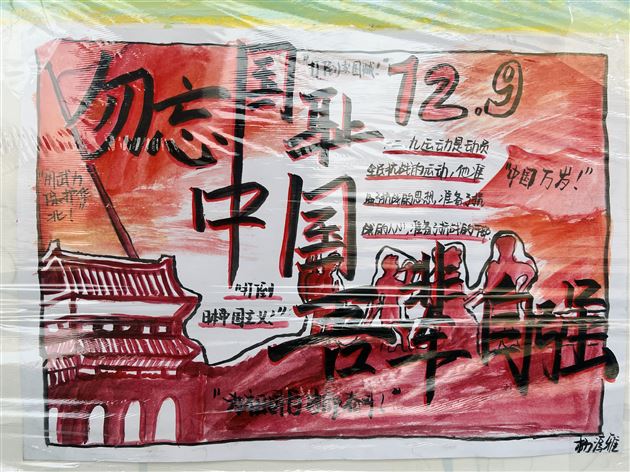 勿忘国耻
"打倒卖国贼!"
12.9
一二·九运动是动员
全民抗战的运动,它准
备了抗战的思想,准备了抗
战的人心,准备了抗战的干部
"中国万岁!"
"用武力
保护华
北!"
中国
"打倒
日本帝国主义!"
吾辈自强